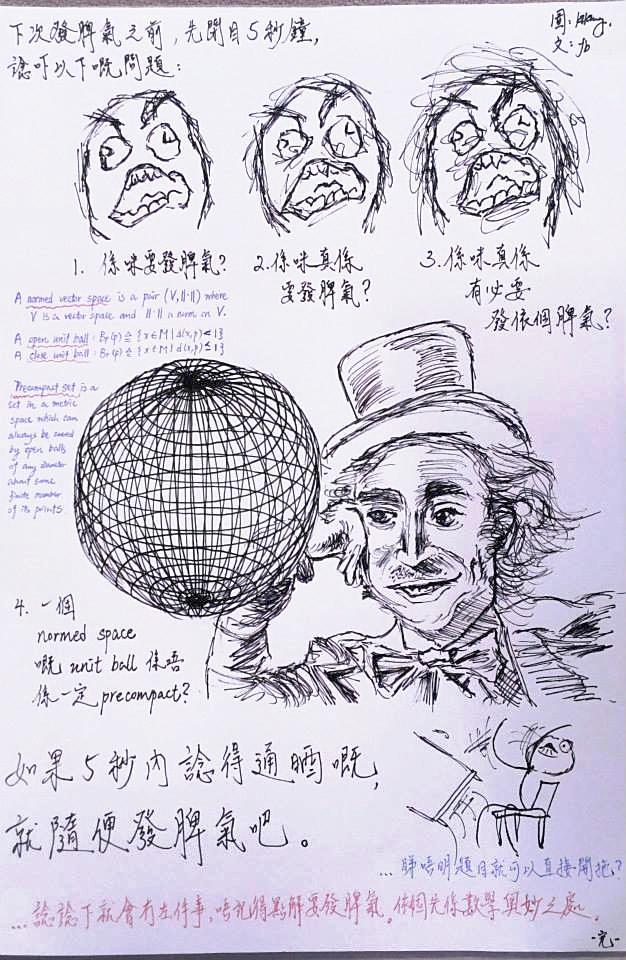 下次發脾氣之前，先閉目5秒鐘，
諗吓以下嘅問題：
圖：
文：fb
1. 係咪要發脾氣？
2. 係咪真係
要發脾氣？
3. 係咪真係
有必要
發依個脾氣？
A normed vector space is a pair (V, ||·||) where
V is a vector space and ||·|| a norm on V.
A open unit ball : B₁(p) ≙ {x∈M | d(x,p)<1}
A close unit ball : B₁(p) ≙ {x∈M | d(x,p)≤1}
Precompact set is a
set in a metric
space which can
always be covered
by open balls
of any diameter
about some
finite number
of its points
4. 一個
normed space
嘅 unit ball 係唔
係一定 precompact?
如果5秒內諗得通晒嘅，
就隨便發脾氣吧。
...睇唔明題目就可以直接開拖？
...諗諗下就會冇左件事，唔記得點解要發脾氣。依個先係數學奧妙之處。
-完-